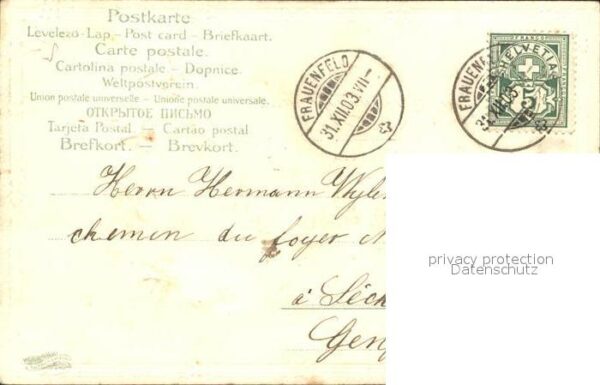 Postkarte
Levelező-Lap. - Post card - Briefkaart.
Carte postale.
Cartolina postale. - Dopnice.
Weltpostverein.
Union postale universelle. - Unione postale universale.
ОТКРЫТОЕ ПИСЬМО
Tarjeta Postal. - Cartão postal.
Brefkort. - Brevkort.
FRAUENFELD
31.XII.03.VII-
FRAUENF
31.XII.03
FRANCO
HELVETIA
5
Herrn Hermann Wyle
chemin du foyer N
privacy protection
Datenschutz
à Séch
Genf